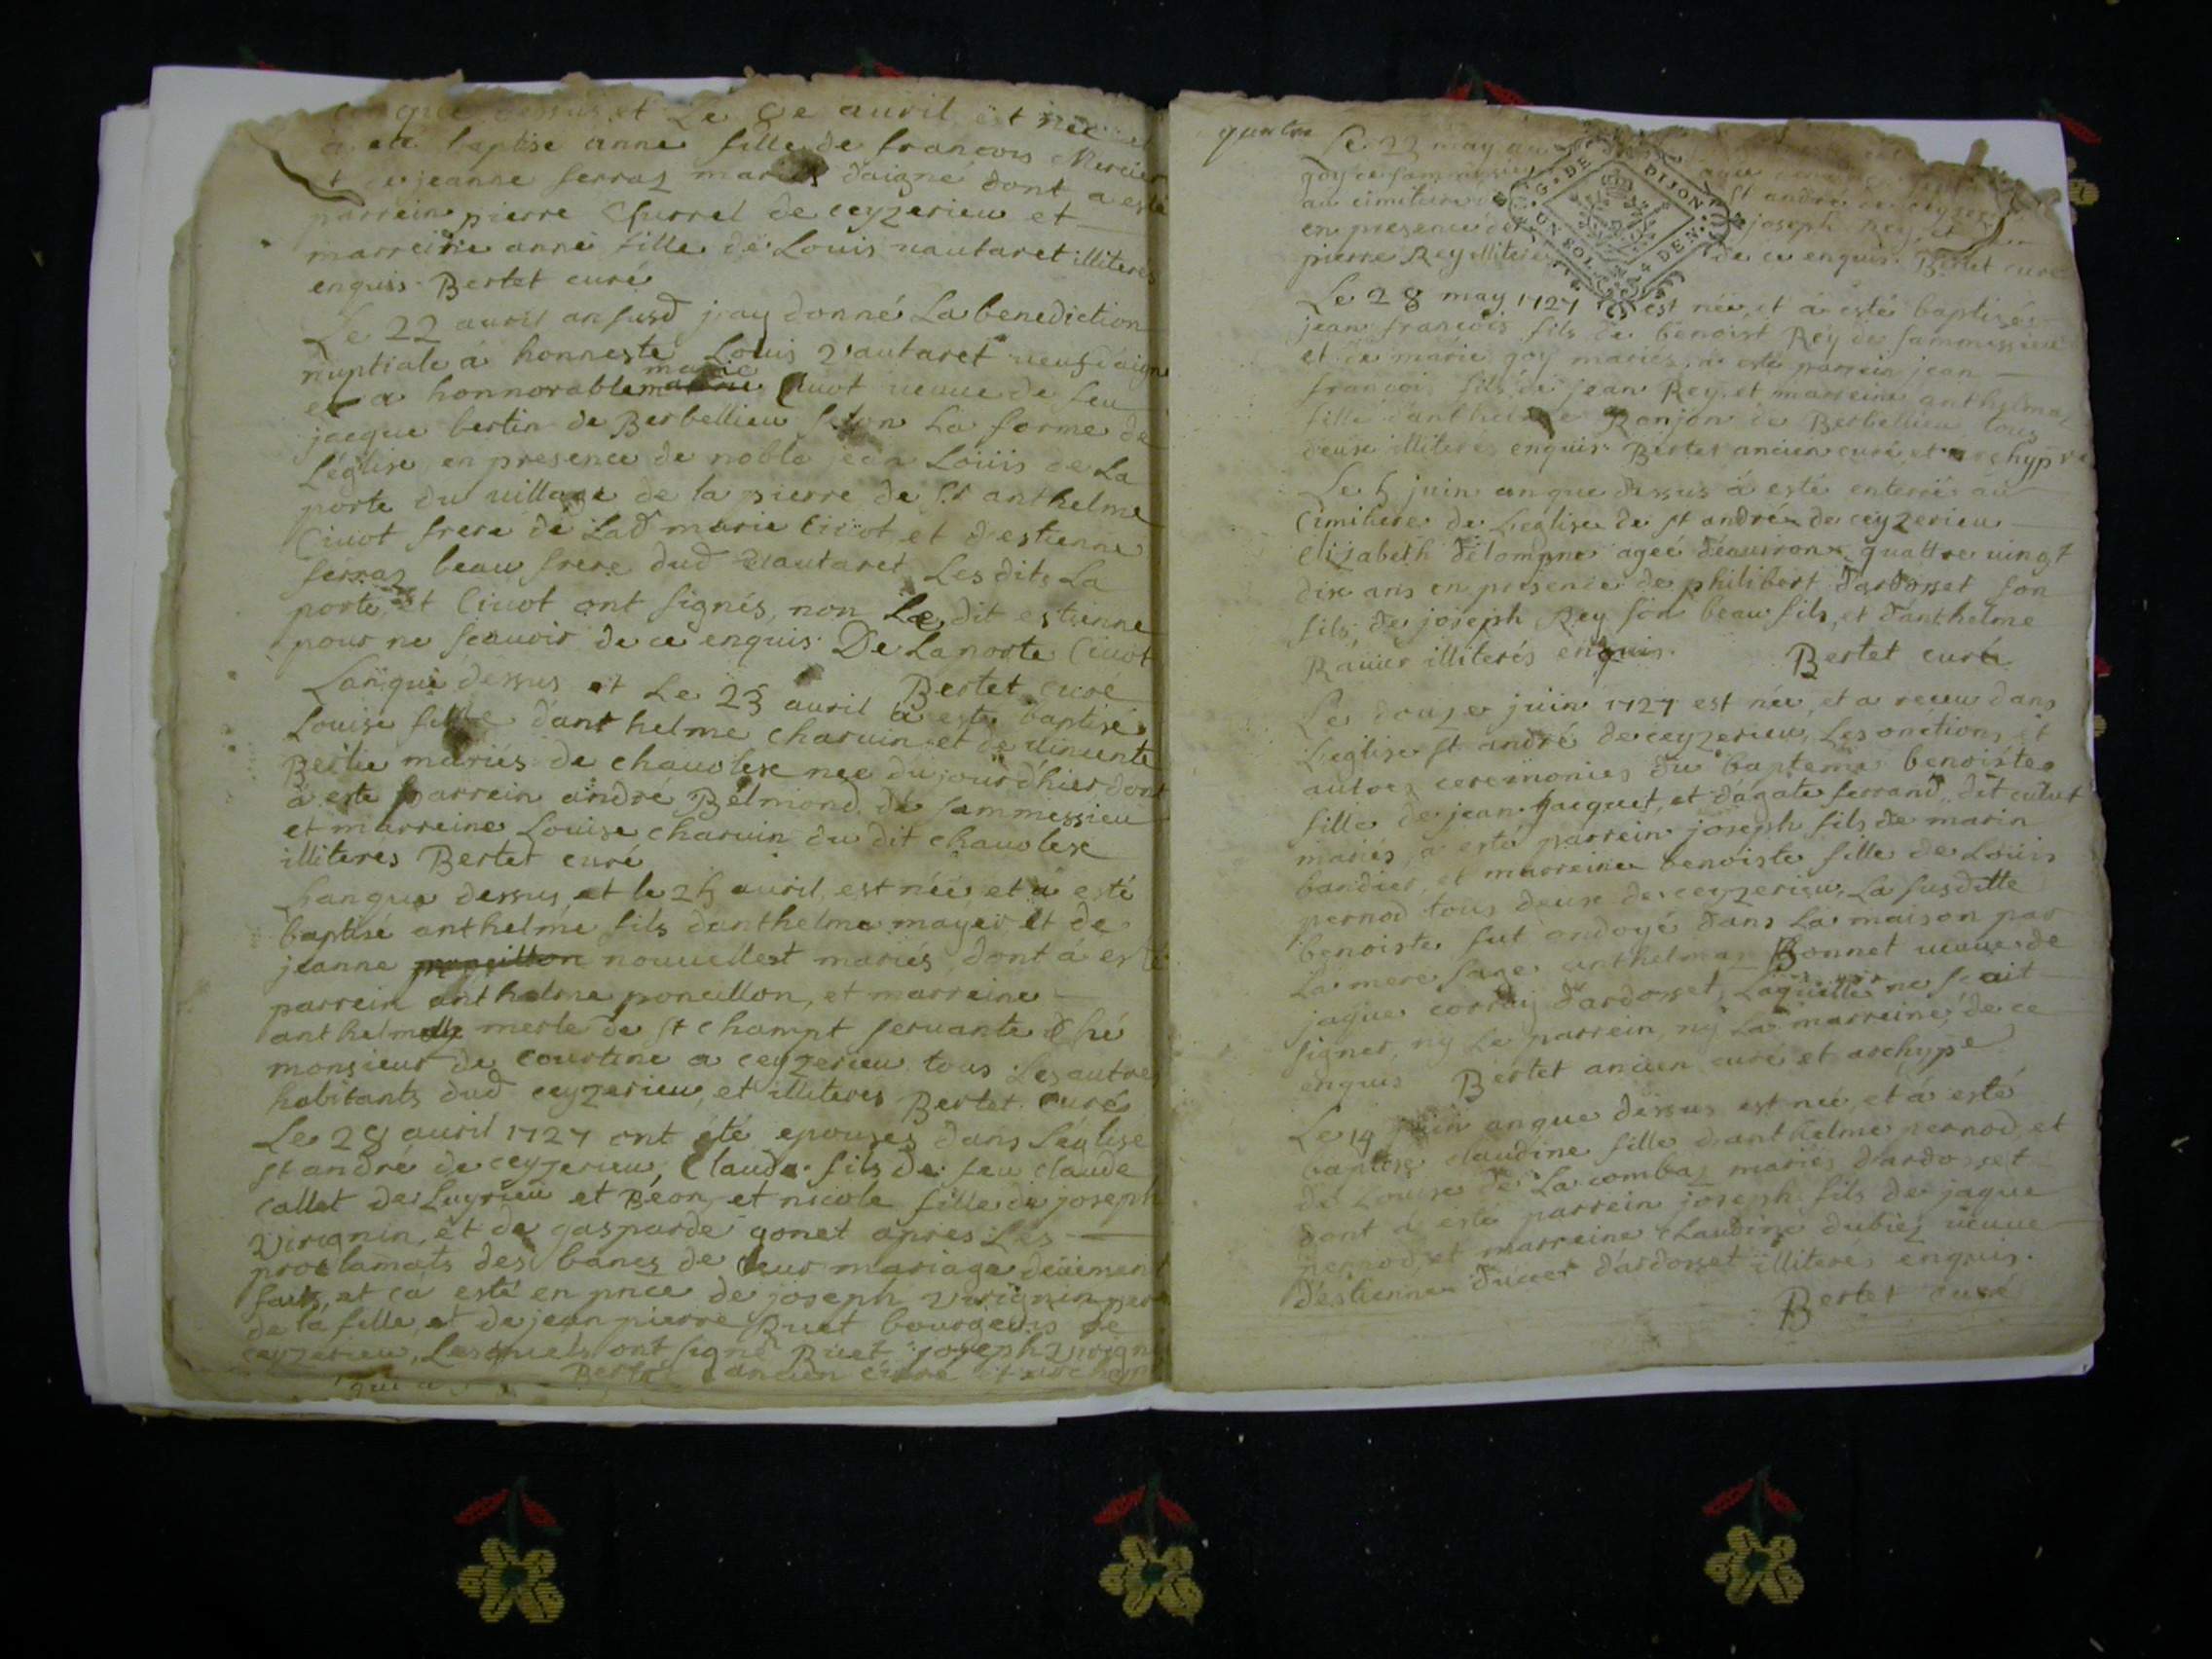 que dessus et Le 9e auril est née et
a ete baptisé anne fille de francois Mercier
et de jeanne ferraz mariés daigne dont a esté
parrein pierre Curret de ceyzerieu et
marreine anne fille de Louis vautaret illiteres
enquis. Bertet curé
Le 22 auril an susd j'ay donné La benediction
nuptiale á honneste Louis vautaret ueuf daigne
et a honnorable marie Ciuot ueuue de feu
jacque bertin de Berbellieu selon La forme de
L'église, en presence de noble jean Loüis de La
porte du uillage de la pierre de St anthelme
Ciuot frere de Lad marie Ciuot et d'estienne
ferraz beau frere dud vautaret Lesdits La
porte, et Ciuot ont signés, non Le dit estienne
pour ne scauoir de ce enquis. De Laporte Ciuot
Bertet curé
Lanque dessus et Le 23 auril a esté baptisé
Louise fille d'anthelme charuin et de uincente
Bertie mariés de chauolex née du jourd'hier dont
a esté parrein andré Belmiond de sammessieu
et marreine Louise charuin du dit chauolex
illiteres Bertet curé
Lanque dessus, et le 25 auril, est née et a esté
baptisé anthelme fils d'anthelme mayer et de
jeanne nouuellest mariés, dont á esté
parrein anthelme poncillon, et marreine
anthelma merle de st champt seruante ché
monsieur de Courtine a ceyzerieu tous Les autres
habitants dud ceyzerieu, et illiteres Bertet curé
Le 28 auril 1727 ont été epousés dans L'église
st andré de ceyzerieu, Claude fils de feu claude
Callet de Luyrieu et Béon, et nicole fille de joseph
Virignin, et de gasparde gonet apres Les
proclamats des bancs de leur mariage deüement
faits, et ça esté en pnce de joseph Virignin pere
de la fille, et de jean pierre Ruet bourgeois de
ceyzerieu, Lesquels ont signé Ruet joseph Virign
Bertet ancien curé et archyp
quatre
Le 23 may
goy de sammessieu
au cimitiere st andré de ceyzer
en presence de joseph Rey, et
pierre Rey illiteres de ce enquis. Bertet curé
G. DE DIJON
UN SOL 4 DEN.
Le 28 may 1727 est née, et a esté baptisés
jean francois fils de benoist Rey de sammessieu
et de marie goy mariés, a esté parrein jean
francois fils de jean Rey, et marreine anthelma
fille d'anthelme Ronjon de Berbellieu tous
deux illiteres enquis. Bertet ancien curé, et archypre
Le 5 juin anque dessus á esté enterré au
Cimitiere de L'eglise de st andré de ceyzerieu
Elizabeth delompne ageé d'enuiron quattre uingt
dix ans en presence de philibert d'ardosset son
fils, de joseph Rey son beau fils, et d'anthelme
Rauier illiterés enquis. Bertet curé
Le douze juin 1727 est née, et a receu dans
L'eglise st andré de ceyzerieu, Les onctions et
autres ceremonies du bapteme benoiste
fille de jean jacquet, et d'agate ferrand dit culut
mariés, a esté parrein joseph fils de marin
bandier, et marreine benoiste fille de Loüis
pernod tous deux de ceyzerieu, La susditte
benoiste fut ondoyé dans La maison par
La mere sage anthelma Bonnet ueuue de
jaque d'ardosset, Laquelle ne scait
signer, ny Le parrein, ny La marreine, de ce
enquis Bertet ancien curé et archype
Le 14 juin anque dessus est née, et á esté
baptisé claudine fille d'anthelme pernod, et
de Louise de La combaz mariés d'ardosset
dont á esté parrein joseph fils de jaque
pernod, et marreine Claudine dubiez ueuue
d'estienne d'ardosset illiterés enquis.
Bertet curé